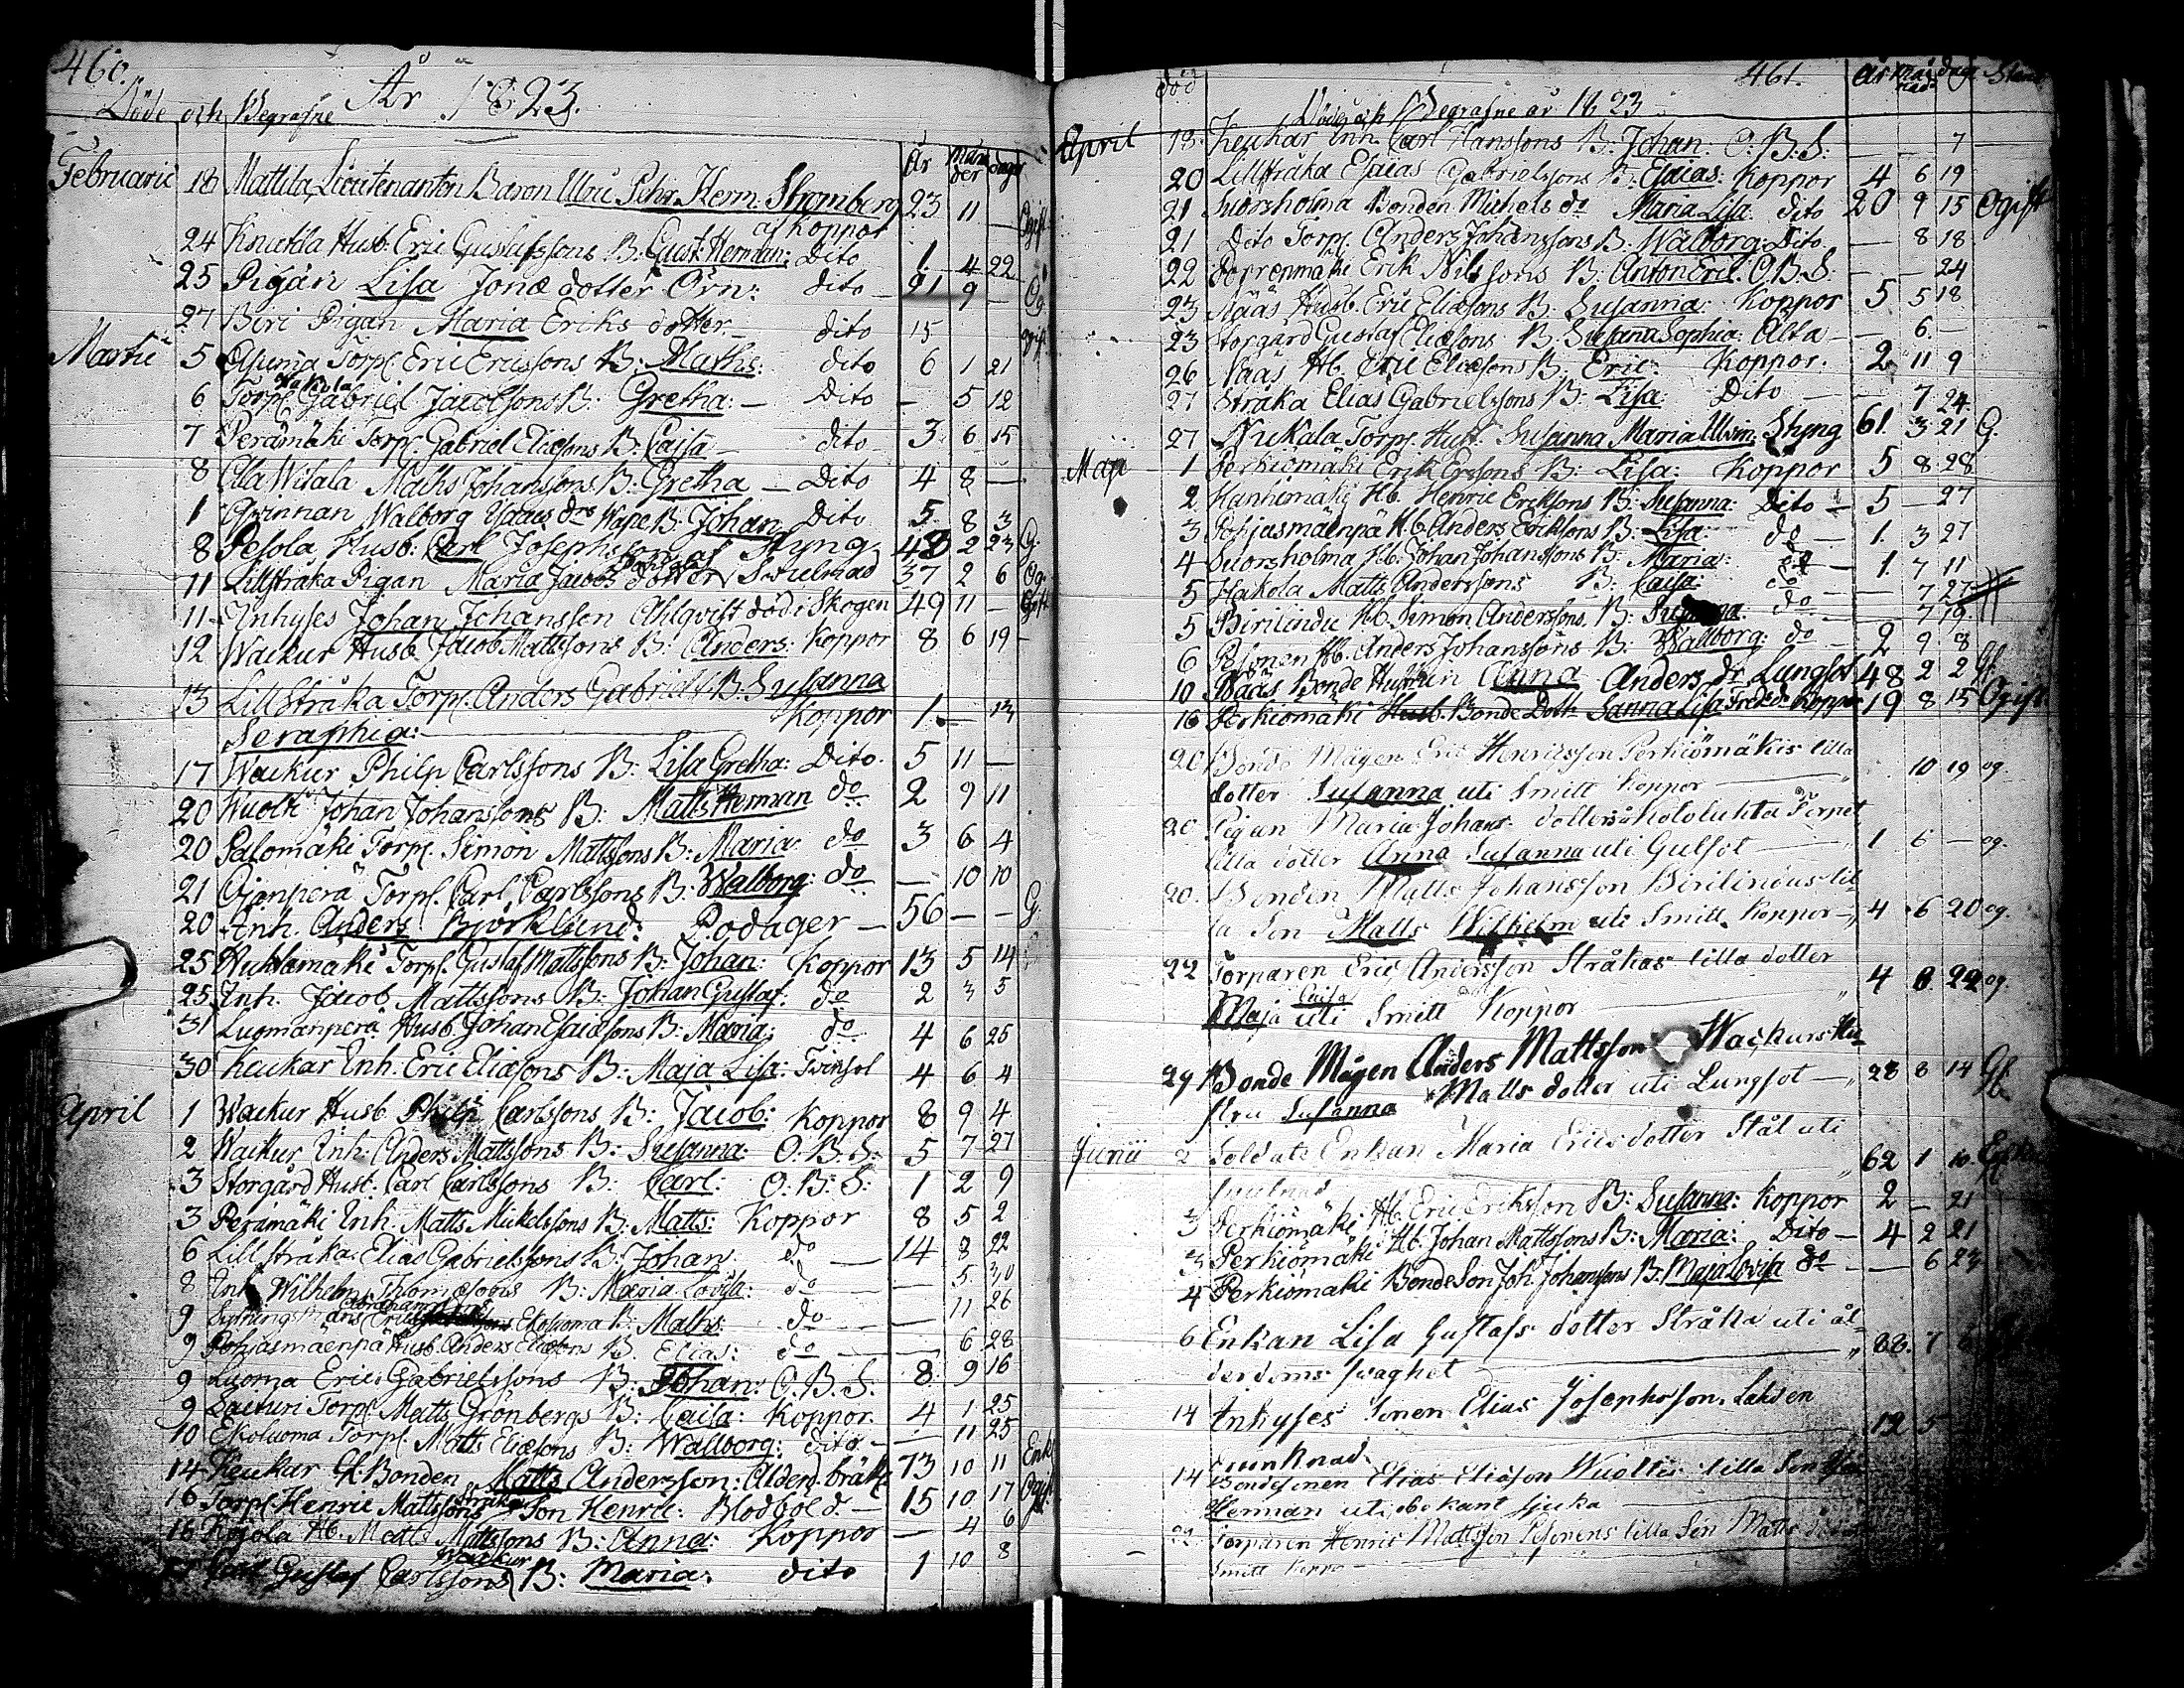 460.
År 1823.
Döde och Begrafne
År Måna der dagar
Februarii 18 Mattila, Lieutenanten Baron Ulric Pehr Herm: Stromberg 23 11 — Ogift
af Koppor
24 Knutila Husb: Eric Gustafssons B: Gust: Herman: Dito 1 4 22
25 Pigan Lisa Jonæ dotter Örn: dito 21 9 — Og
27 Biri Pigan Maria Eriks dotter — dito 15 Ogift
Martii 5 Torp: Eric Ericssons B: Maths: dito 6 1 21
Hakola
6 Torp: Gabriel Jacobssons B: Gretha: — Dito — 5 12
7 Perämäki Torp: Gabriel Eliæsons B: Caisa — dito 3 6 15
8 Ala Wisala Mathts Johanssons B: Gretha — Dito 4 8 —
1 Qwinnan Walborg Isaacs drs Wape B: Johan Dito 5 8 3
8 Pesola Husb: Carl Josephsson af Styng 48 2 23 G.
11 Lillstråka Pigan Maria Jacobs dotter 37 2 6 Og.
11 Inhyses Johan Johansson Ahlqvist död i Skogen 49 11 — Gift
12 Wackur Husb Jacob Mattssons B: Anders: Koppor 8 6 19 —
13 Lillstråka Torp: Anders Gabriels: B: Susanna
Seraphia: Koppor 1 — 13
17 Wackur Philp Carlssons B: Lisa Gretha: Dito 5 11 —
20 Wuolti Johan Johanssons B: Matts Herman do 2 9 11
20 Palomäki Torp: Simon Mattssons B: Maria: do 3 6 4
21 Ojanperä Torp: Carl Carlssons B: Walborg: do — 10 10
20 Inh. Anders Björklund: Podager — 56 — — G.
25 Huhtamäki Torp: Gustaf Mattssons B: Johan: Koppor 13 5 14
25 Inh: Jacob Mattssons B: Johan Gustaf: do 2 3 5
31 Luomanperä Husb Johan Esaiæsons B: Maria: do 4 6 25
30 Keukar Inh. Eric Eliæsons B: Maja Lisa: Tvinsot 4 6 4
April 1 Wackur Husb Philp Carlssons B: Jacob: Koppor 8 9 4
2 Wackur Inh: Anders Mattssons B: Susanna: O. B. S: 5 7 27
3 Storgård Husb: Carl Carlssons B: Carl: O: B: S: 1 2 9
3 Perämäki Inh. Matts Mickelssons B: Matts: Koppor 8 5 2
6 Lillstråka Elias Gabrielssons B: Johan: do — 14 8 22
8 Inh Wilhelm Thomæsons B: Maria Lovisa: do — — 5 30
Abrahamssons
9 Sytningsmans Erics Ekoluoma B: Maths: do — 11 26
9 Pohjasmäenpä Husb. Anders Eliæsons B: Elias: do — 6 28
9 Luoma Eric Gabrielssons B: Johan: O. B. S: 8 9 16
9 Torp: Matts Grönbergs B: Caisa: Koppor. 4 1 25
10 Ekoluoma Torp: Matts Eliæsons B: Walborg: dito — 11 25
14 Keukar Gl: Bonden Matts Andersson: Alderd. bräkl: 73 10 11 Enkl
16 Torp: Henric Mattssons Son Henric: Blodsold. — 15 10 17 Ogift
16 Kojola Hb. Matts Mattssons B: Anna: Koppor — 4 6
Wackur
Gustaf Carlssons B: Maria: dito 1 10 8
död 461. år månad dagar
Döde och Begrafne år 1823
April 18. Keukar Inh. Carl Hanssons B: Johan: O: B: S: — — 7
20 Lillstråka Esaias Gabrielssons B: Esaias: Koppor 4 6 19
21 Suorsholma Bonden Michels do Maria Lisa dito 20 9 15 Ogift
21 Dito Torp: Anders Johanssons B: Walborg: Dito — 8 18
22 Erik Nilssons B: Anton Eric: O. B. S: — — 24
23 Nääs Husb. Eric Eliæsons B: Susanna: Koppor 5 5 18
23 Storgård Gustaf Eliæsons B: Susana Sophia: Älta — 6 —
26 Nääs Hb. Eric Eliæsons B: Eric: Koppor. 2 11 9
27 Stråka Elias Gabrielssons B: Lisa: Dito — 7 24
27 Nickala Torp: Hust. Susanna Maria Ulvin: Styng 61 3 21 G.
Maji 1 Perkiömäki Erik Erssons B: Lisa: Koppor 5 8 28
2 Hanhimäki Hb. Henric Erikssons B: Susanna: Dito — 5 — 27
3 Pohjasmäenpä Hb. Anders Erikssons B: Lisa: do — 1 3 27
4 Suorsholma Hb. Johan Johanssons B: Maria: do — 1 7 11
5 Hakola Matts Anderssons B: Caisa: do — 7 27
5 Birilindu Hb. Simon Anderssons B: do — 7 19
6 Pesonen Hb. Anders Johanssons B: Walborg: do — 2 9 8
10 Nääs Bonde Hustrun Anna Anders dr Lungsot 48 2 2 Gf
16 Perkiömäki Bonde Dottr Sanna Lisa Freds dr Koppor 19 8 15 Ogift
20 Bonde Mågen Eric Henricsson Perkiömäkis lilla
dotter Susanna uti Smitt Koppor — 10 19 og.
20 Pigan Maria Johans dotters Hotoluhta Torpet
lilla dotter Anna Susanna uti Gulsot — 1 6 — og.
20. Bonden Matts Johansson Birilindus lil-
la Son Matts Wilhelm uti Smitt Koppor — 4 6 20 og.
22 Torparen Eric Andersson Stråkas lilla dotter
Caisa
Maja uti Smitt Koppor 4 8 22 og.
29 Bonde Mågen Anders Mattsson Wackurs Hu-
stru Susanna Matts dotter uti Lungsot — 28 8 14 Gf.
Junii 2 Soldats Enkan Maria Erics dotter Stål uti
62 1 10
3 Perkiömäki Hb. Eric Eriksson B: Susanna: Koppor 2 — 21
3 Perkiömäki Hb. Johan Mattssons B: Maria: Dito — 4 2 21
4 Perkiömäki Bonde Son Joh. Johanssons B: Maja Lovisa do — — 6 23
6 Enkan Lisa Gustafs dotter Stråka uti ål-
derdoms svaghet 88. 7 6
14 Inhyses Sonen Elias Josephsson
drunknad 12 5
14 Bondesonen Elias Eliæson Wuoltis lilla Son
Herman uti obekant sjuka
22 Torparen Henric Mattsson Pesonens lilla Son Matts
Smitt Koppor